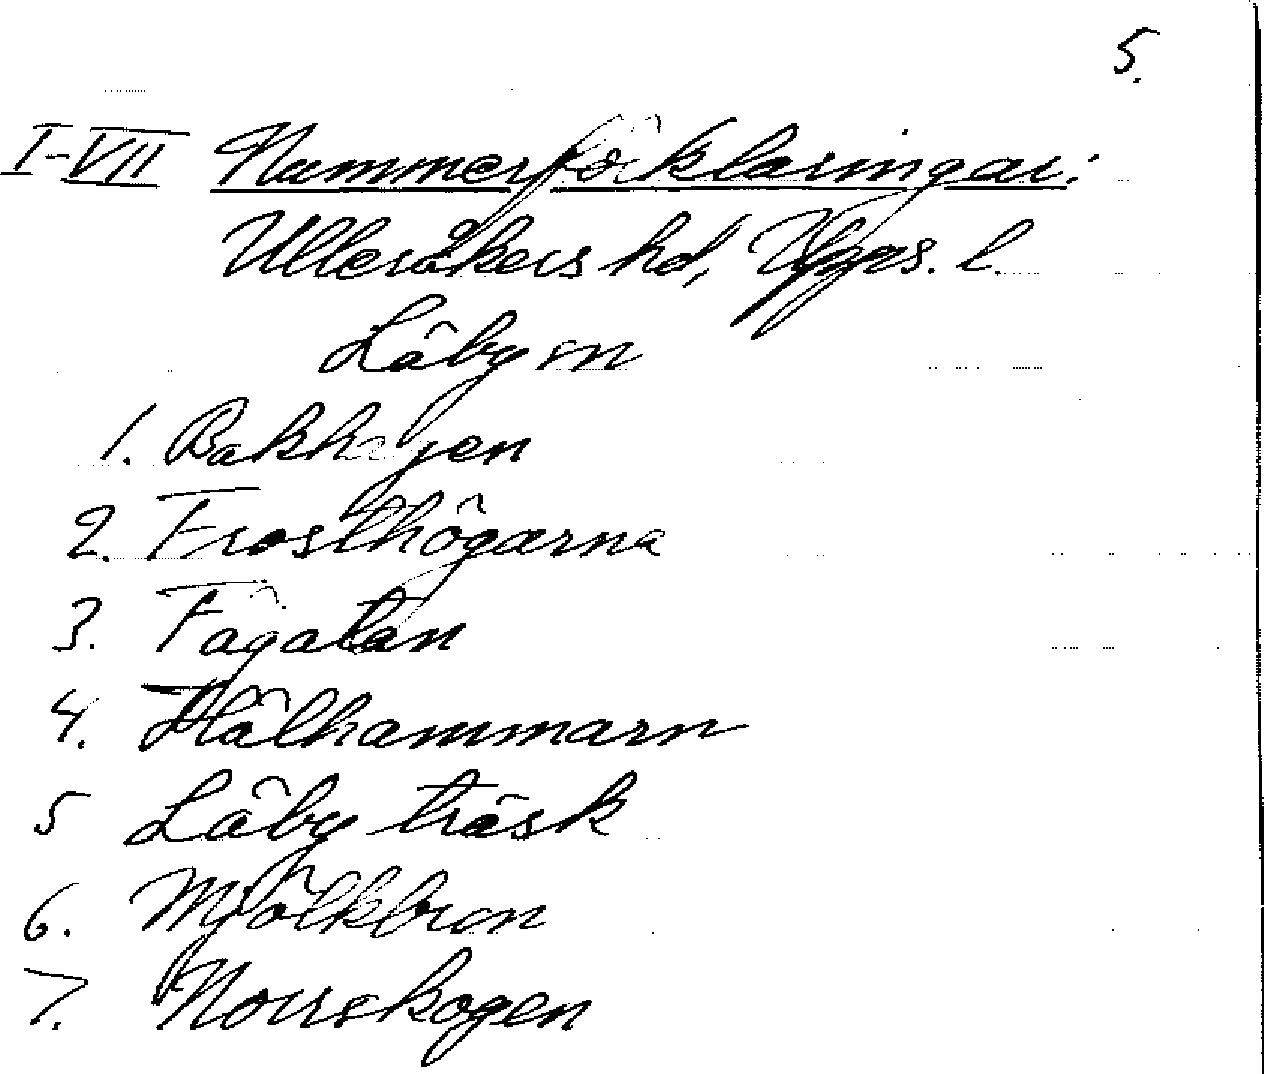 5.
I-VII Nummerförklaringar:
Ulleråkers hd, Upps. l.
Läby sn
1. Bakhagen
2. Frosthögarna
3. Fägatan
4. Hålhammarn
5 Läby träsk
6. Mjölkbron
7. Norrskogen